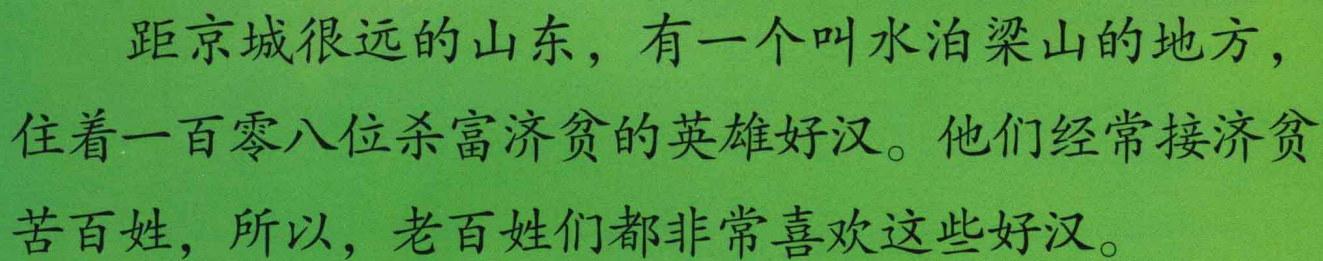 距京城很远的山东，有一个叫水泊梁山的地方，
住着一百零八位杀富济贫的英雄好汉。他们经常接济贫
苦百姓，所以，老百姓们都非常喜欢这些好汉。